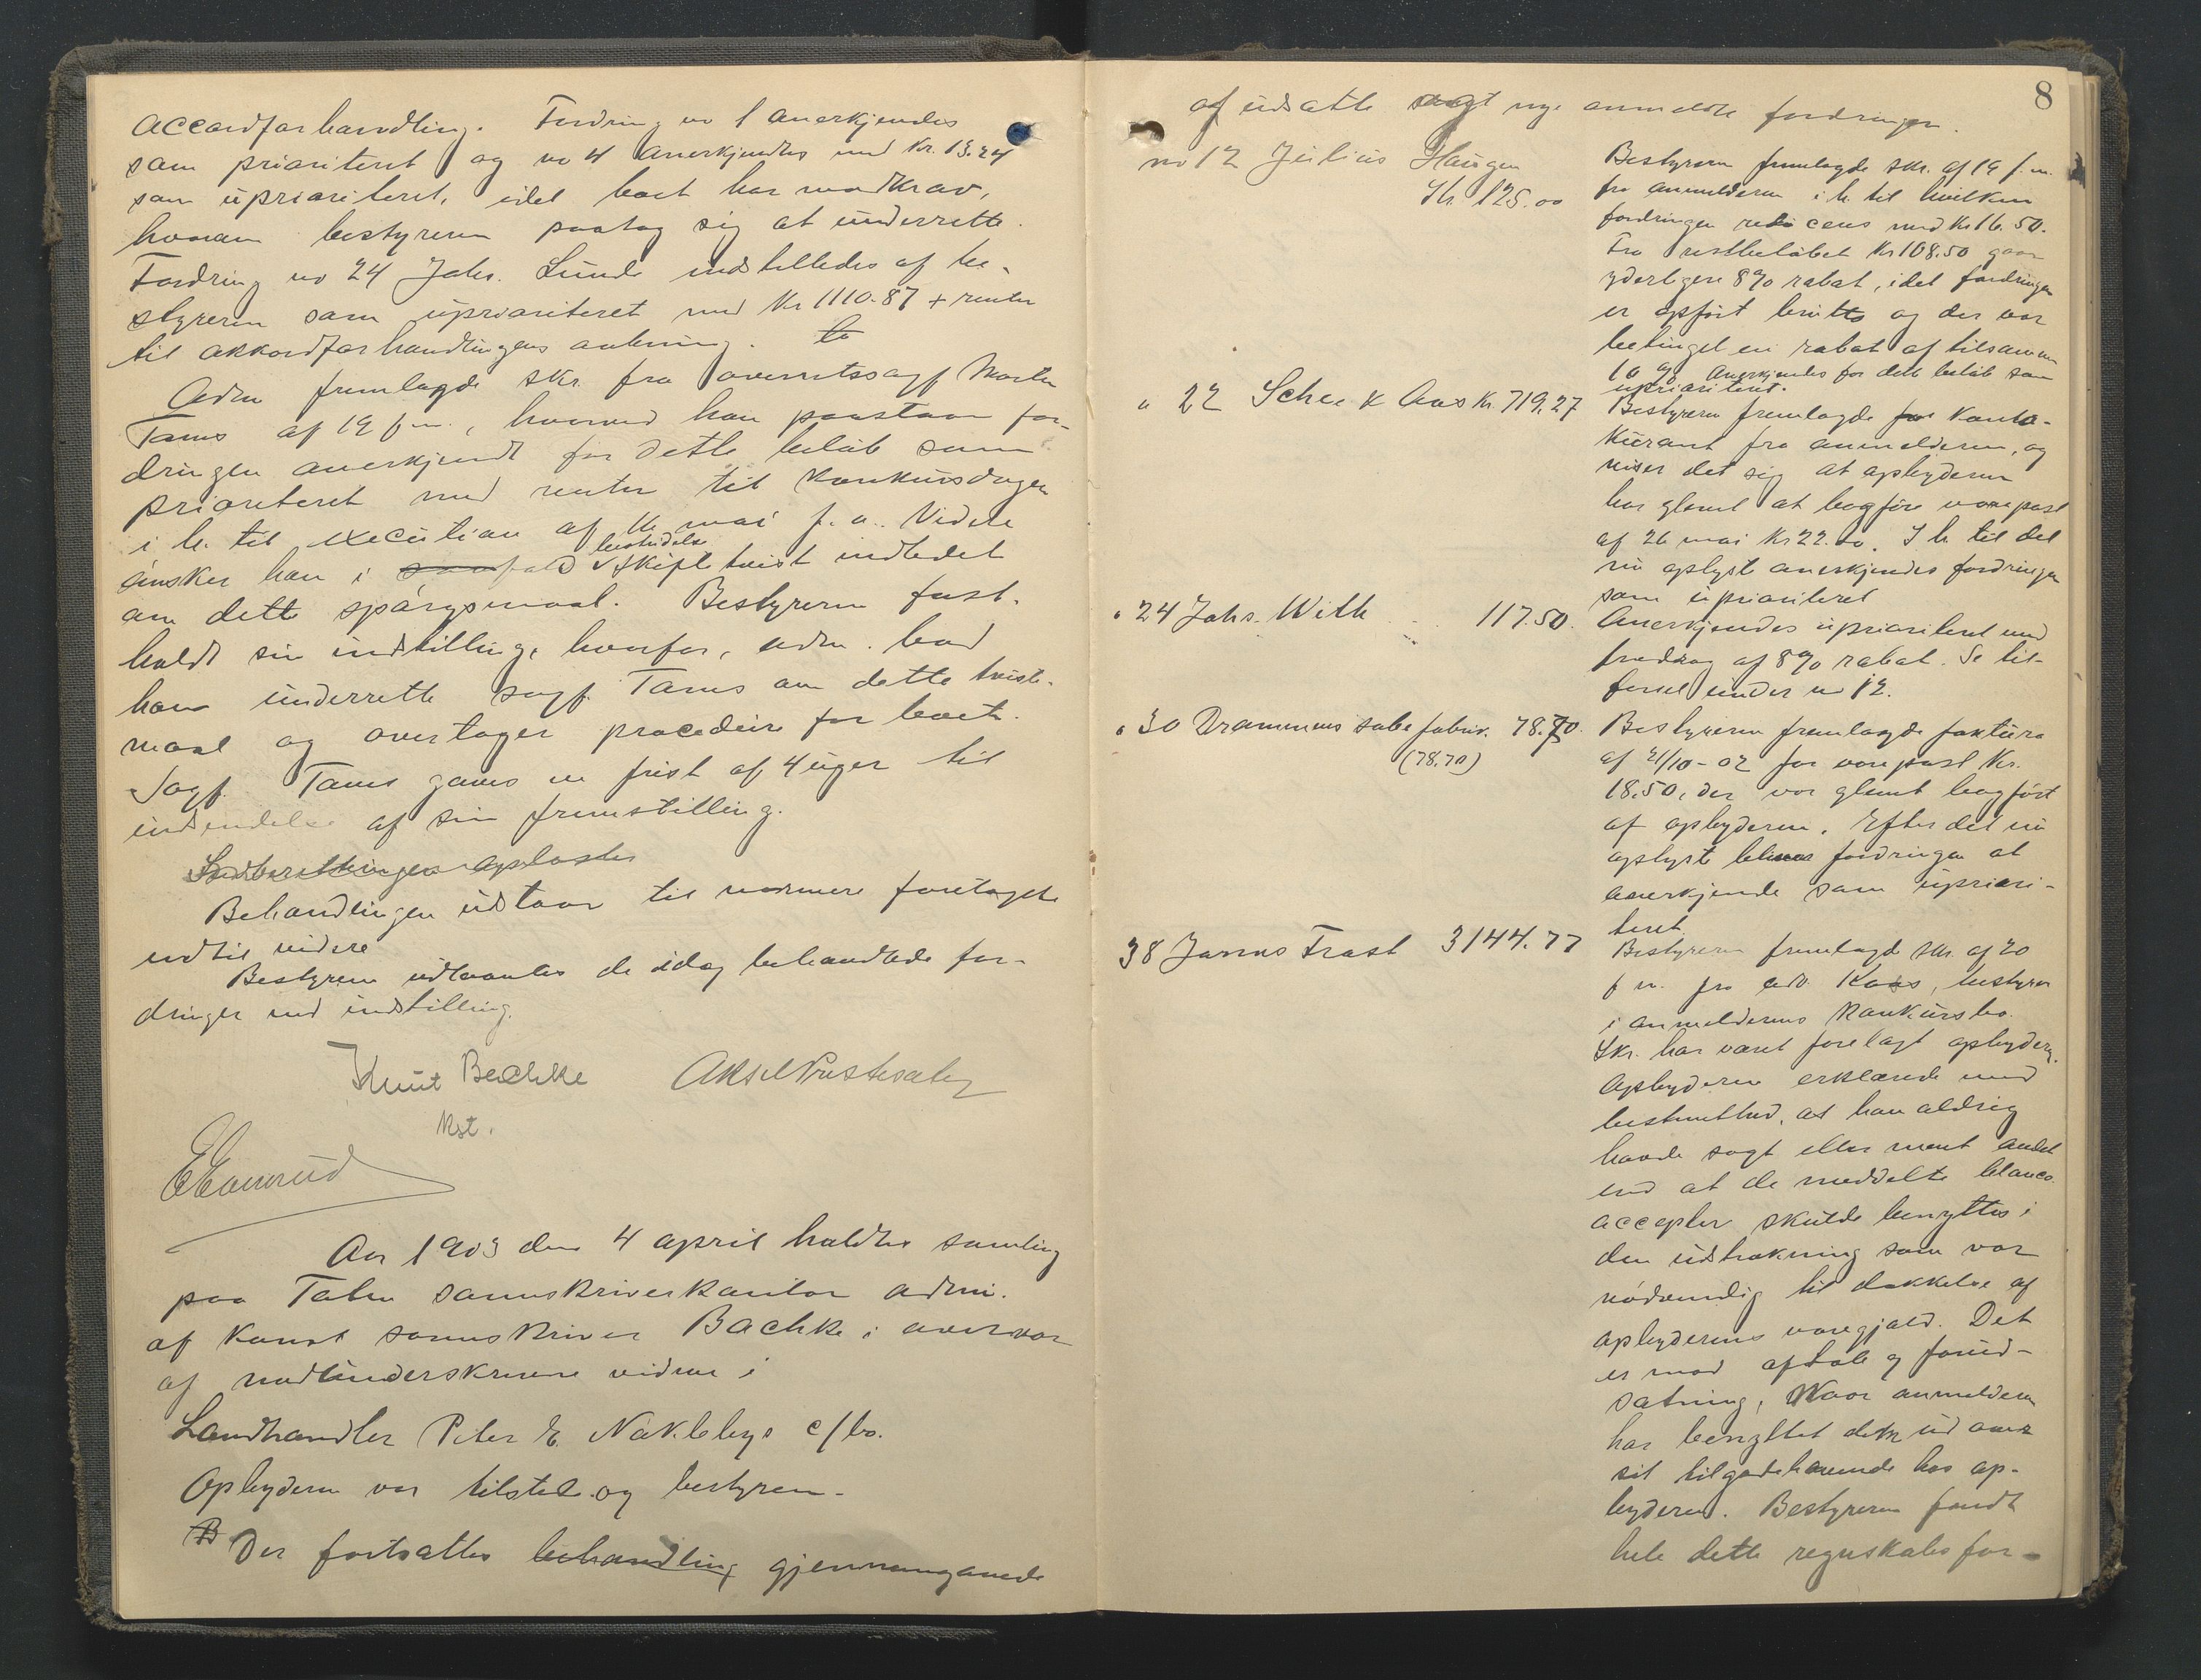 accordforhandling. Fordring no 1 anerkjendes
som prioriteret og no 4 anerkjendtes med Kr. 13.24
som uprioriteret, idet boet har modkrav,
hvorom bestyreren paatog sig at underrette.
Fordring no 24 Johs. Lunde indstilledes af be-
styreren som uprioriteret med Kr 1110.87 + renter
til akkordforhandlingens aabning.
Adm fremlagde skr. fra overretssagf Morten
Tams af 19 f. m., hvorved han paastaar for-
dringen anerkjendt for dette beløb som
prioriteret med renter til konkursdagen
i h. til execution af mai f. a. Videre
ønsker han i bestridelse skiftetvist indledet
om dette spørgsmaal. Bestyreren fast-
holdt sin indstilling, hvorfor adm. bad
ham underrette sagf. Tams om dette tviste-
maal og overtager procedure for boet.
Sagf. Tams gaves en frist af 4 uger til
indsendelse af sin fremstilling.
Indberetningen oplæstes
Behandlingen udstaar til nærmere foretages
indtil videre
Bestyreren udlaantes de idag behandlede for-
dringer med indstilling.
Knut Bachke
Kst.
Aar 1903 den 4 april holdtes samling
paa Tolen sorenskriverkontor adm.
af Konst sorenskriver Bachke i overvær
af medunderskrevne vidner i
Landhandler Peter E. Naklebys c/bo.
Opbyderen var tilstede og bestyreren.
Der fortsattes behandling gjennemgaaende
8
af udsatte sagt nye anmeldte fordringer.
no 12 Julius Haugen
Kr. 125.00
Bestyreren fremlagde skr. af 19 f. m.
fra anmelderen i h. til hvilken
fordringen reduceres med Kr 16.50.
Fra restbeløbet Kr 108.50 gaar
yderligere 8% rabat, idet fordringen
er opført brutto og der var
betinget en rabat af tilsammen
10 %. Anerkjendes for dette beløb som
uprioriteret.
" 22 Kr. 719.27
Bestyreren fremlagde for Konto-
kurant fra anmelderen, og
viser det sig at opbyderen
har glemt at bogføre varepost
af 26 mai Kr 22.00. I h. til det
nu oplyste anerkjendes fordringen
som uprioriteret
" 24 Johs. With 117.50.
Anerkjendes uprioriteret med
fradrag af 8% rabat. Se til-
førsel under no 12.
" 30 Drammens sæbefabrik. 78.70.
(78.70)
Bestyreren fremlagde faktura
af 21/10-02 for varepost Kr.
18.50, der var glemt bogført
af opbyderen. Efter det nu
oplyste blev fordringen at
anerkjende som upriori-
teret.
38 Jarnes Trast 3144.77
Bestyreren fremlagde skr. af 20
f m. fra adv. Kaas, bestyrer
i anmelderens konkursbo.
Skr. har været forelagt opbyderen.
Opbyderen erklærede med
bestemthed, at han aldrig
havde sagt eller ment andet
end at de meddelte blanco-
accepter skulde benyttes i
den udstrækning som var
nødvendig til dækkelse af
opbyderens varegjæld. Det
er mod aftale og forud-
sætning, naar anmelderen
har benyttet dem ud over
sit tilgodehavende hos op-
byderen. Bestyreren fandt
hele dette regnskabsfor-